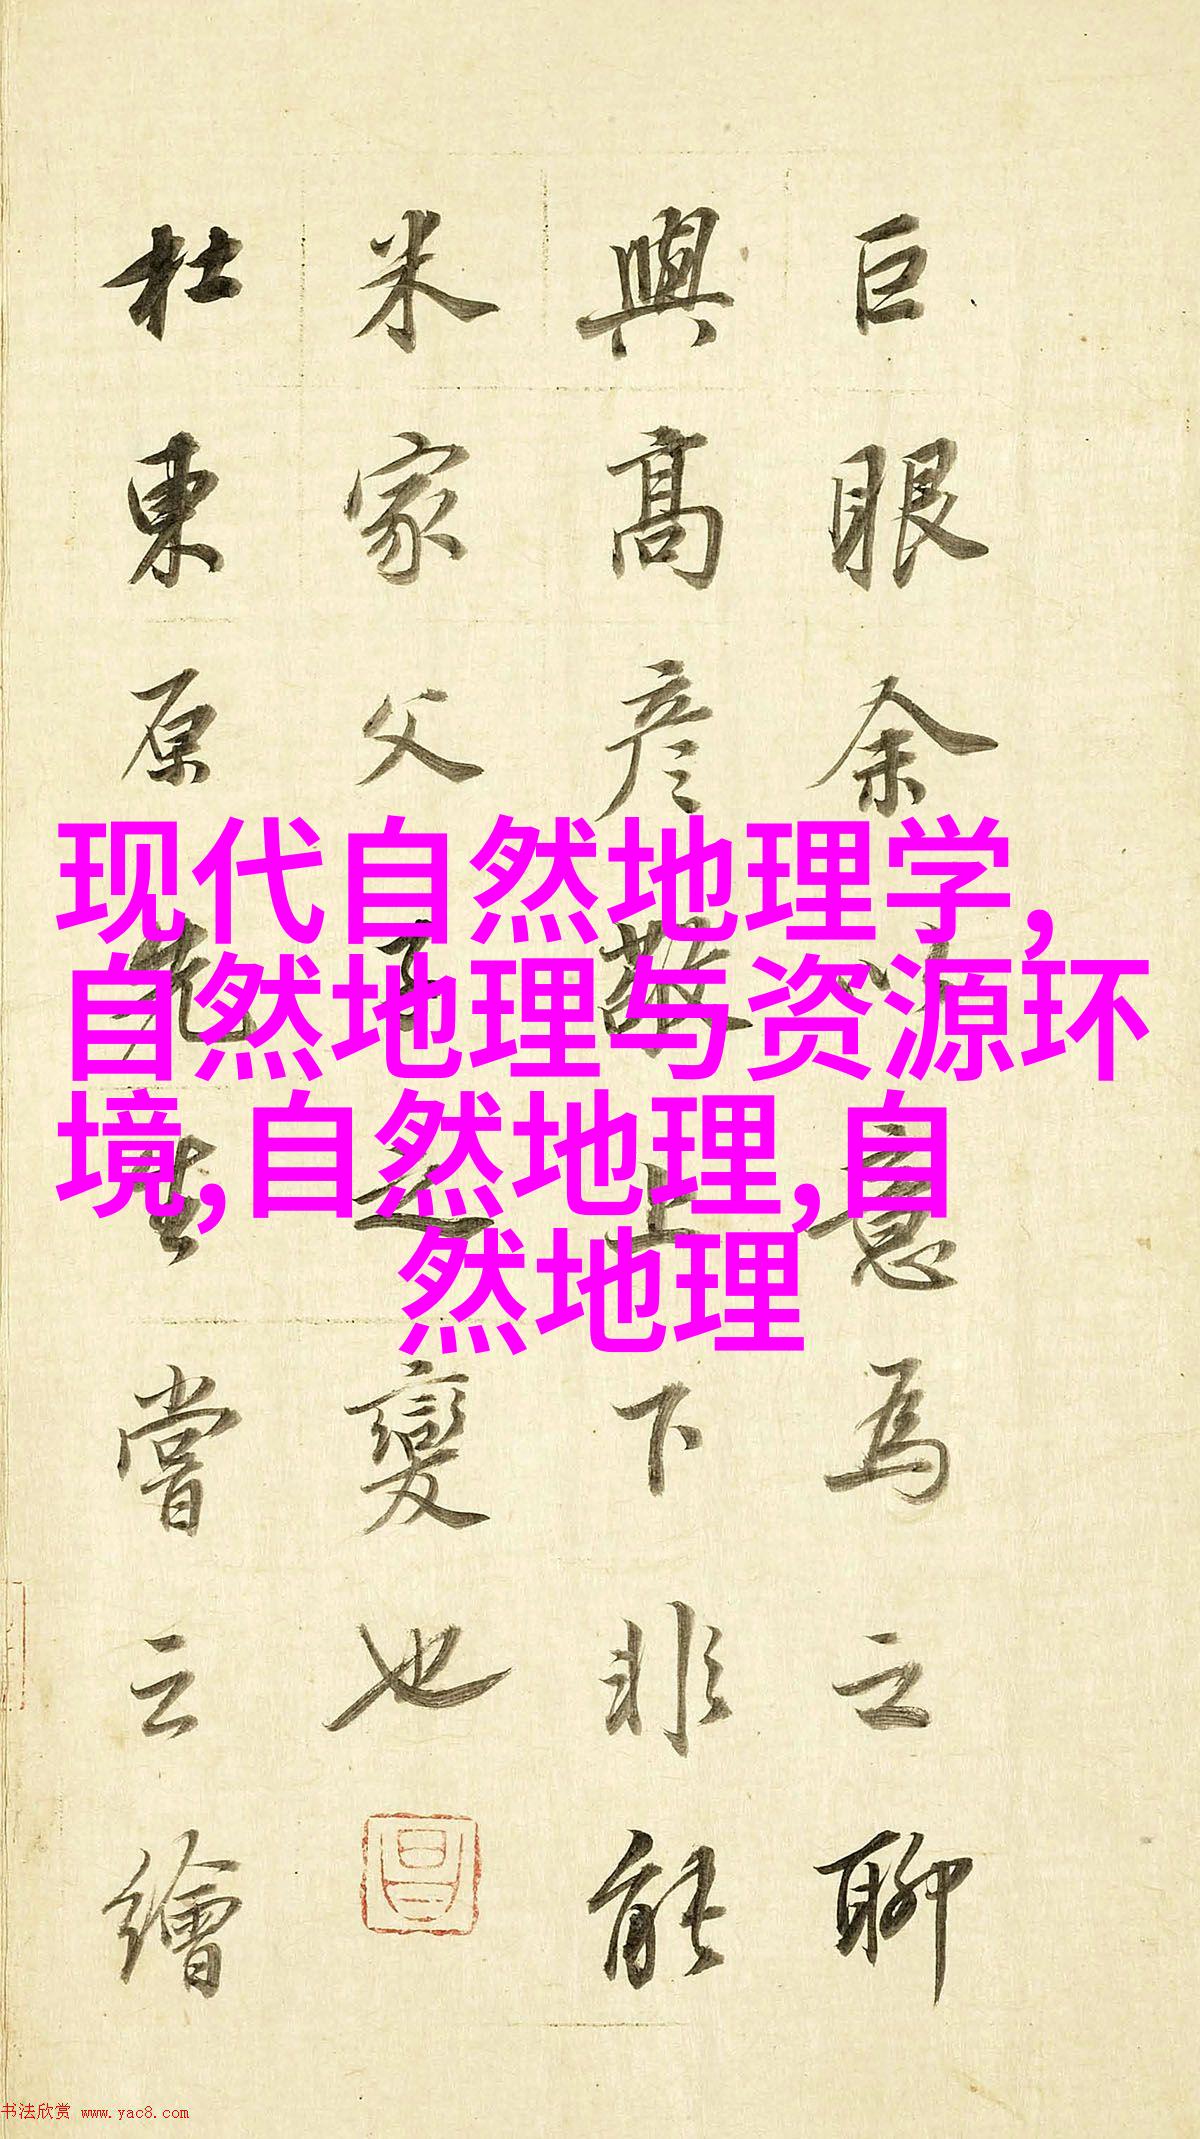 巨眼余以意為之聊
與高彦敬上下非能
米家父子之變也
杜東原先生嘗云繪
现代自然地理学,
自然地理与资源环
境,自然地理,自
然地理
书法欣赏 www.yac8.com